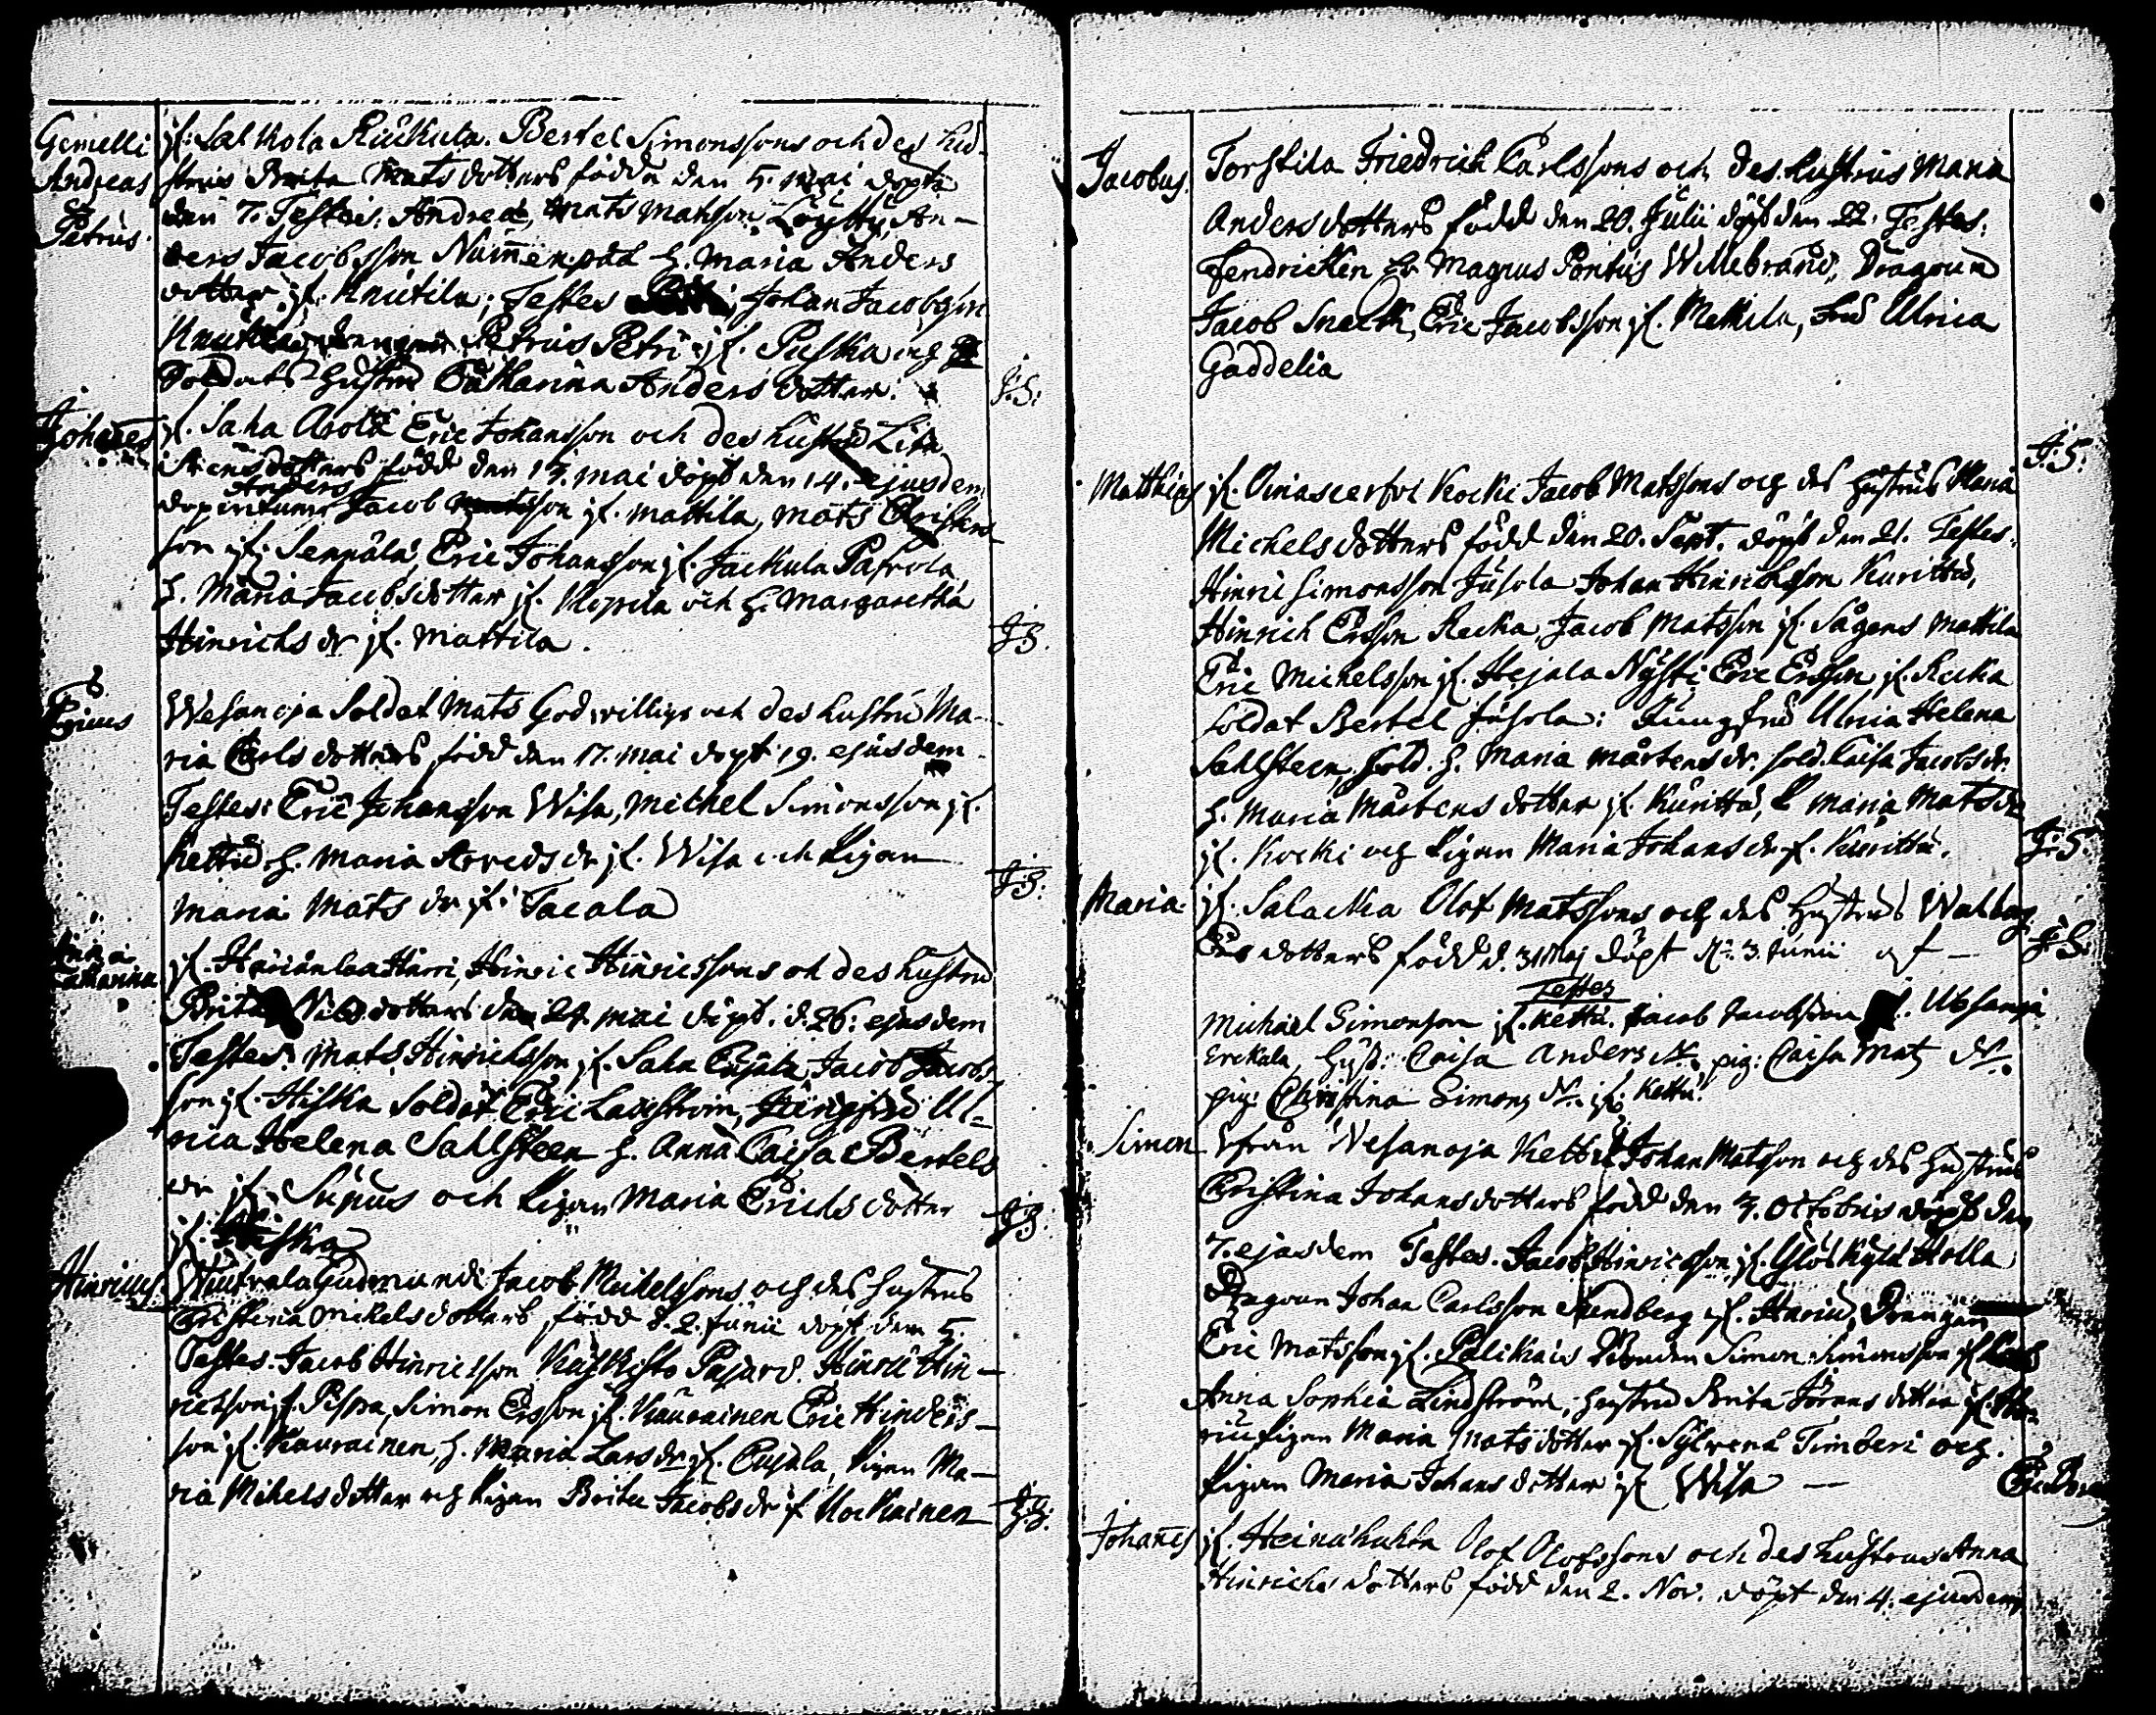 Gemelli
Andreas
&
Petrus.
jf. Salkola Riukuta. Bertel Simonssons och des hu-
strus Brita Mats dotters födde den 5. Mai döpte
den 7. Testes: Andreæ, Mats Matsson Löytty, An-
ders Jacobsson Numenpää h. Maria Anders
dotter jf. Knutila; Testes Petri, Johan Jacobsson
Knutila, drengen Petrus Petri jf. Puska och
Soldats Hustru Catharina Anders dotter.
J:S:
Johanes
jf. Saha Arola Eric Johansson och des hustru Lisa
Stensdotters född den 13. Mai döpt den 14. ejusdem
Anders
Jacob son jf. Mattila, Mats Christers
son jf. Seppälä, Eric Johansson jf. Jackula Pafvola
h. Maria Jacobsdotter jf. och h. Margaretha
Hinrichs dr jf. Mattila.
J:S.
Ericus
Wesanoja Soldat Mats Godwilligs och des hustru Ma-
ria Carls dotters född den 17. Mai döpt 19. ejusdem
Testes: Eric Johansson Wisa, Michel Simonsson jf.
Kettu h. Maria Arveds dr jf. Wisa och Pigan
Maria Mats dr jf. Tacala
J:S:
Anna
Catharina
jf. Hirri, Hinric Hinricssons och des hustru
Brita Nils dotters den 24. Mai döpt. d. 26: ejusdem
Testes: Mats Hinrichsson jf. Saha Cujala Jacob Jacobs-
son jf. Hiska Soldat Eric Laxström, Jungfru Ul-
rica Helena Sahlsteen h. Anna Caisa Bertels
dr jf. Supus och Pigan Maria Erichs dotter
jf. Hiska
J:S:
Hinricus
Gudmundi Jacob Michelssons och des hustrus
Christina Mickels dotters född d. 2. Junii döpt den 5.
Testes. Jacob Hinricsson Pajard. Hinric Hin-
ricsson jf. Pispa, Simon Ersson jf. Kaurainen Eric Hinders-
son jf. Kaurainen, h. Maria Lars dr jf. Cujala, Pigan Ma-
ria Mikels dotter och Pigan Brita Jacobs dr jf Kockainen
J:S:
Jacobus.
Torstila Friedrich Carlssons och des hustrus Maria
Anders dotters född den 20. Julii döpt den 22. Testes:
Fendricken hr Magnus Pontus Willebrand, Dragoun
Jacob Snack, Eric Jacobsson jf. Mekila, fru Ulrica
Gaddelia
J:S:
Matthias
jf. Kocki Jacob Matssons och des hustrus Maria
Michels dotters född den 20. Sept. döpt den 21. Testes.
Hinric Simonsson Jusola Johan Hinrichsson Kurittu,
Hinrich Ersson Recka, Jacob Matsson jf. Sågens Mattila
Eric Michelsson jf. Hejala Nysti Eric Ersson jf. Recka
Soldat Bertel Jusola: Jungfru Ulrica Helena
Sahlsteen, Sold. h. Maria Mårtens dr. Sold. Caisa Jacobs dr.
h. Maria Mårtens dotter jf. Kurittu, P Maria Mats dr
jf. Kocki och Pigan Maria Johans dr jf. Kurittu.
J:S.
Maria.
jf. Salacka Olof Matssons och des hustrus Walborg
Ers dotters född d. 31 Maj döpt d. 3. Junii
J:S.
Testes
Michael Simonsson jf. Kettu. Jacob Jacobsson jf.
Erckala, hust: Caisa Anders dr. pig: Caisa Mats dr.
pig: Christina Simons dr. jf. Kettu.
Simon
ifrån Wesanoja Kettu Johan Matsson och des hustrus
Christina Johansdotters född den 3. Octobris döpt den
7. ejusdem Testes. Jacob Hinricsson jf. Holla
Dragoun Johan Carlsson Sundberg jf. Hariu, Drengen
Eric Matsson jf. Palikais Bonden Simon Simonsson jf
Anna Sophia Lindström, hustru Brita Jörans dotter jf. Ha-
riu Pigan Maria Mats dotter jf. Timberi och.
Pigan Maria Johans dotter jf Wisa —
Johanes
jf. Heinäkukka Olof Olofssons och des hustrus Anna
Hinrichs dotters född den 2. Nov. döpt den 4. ejusdem